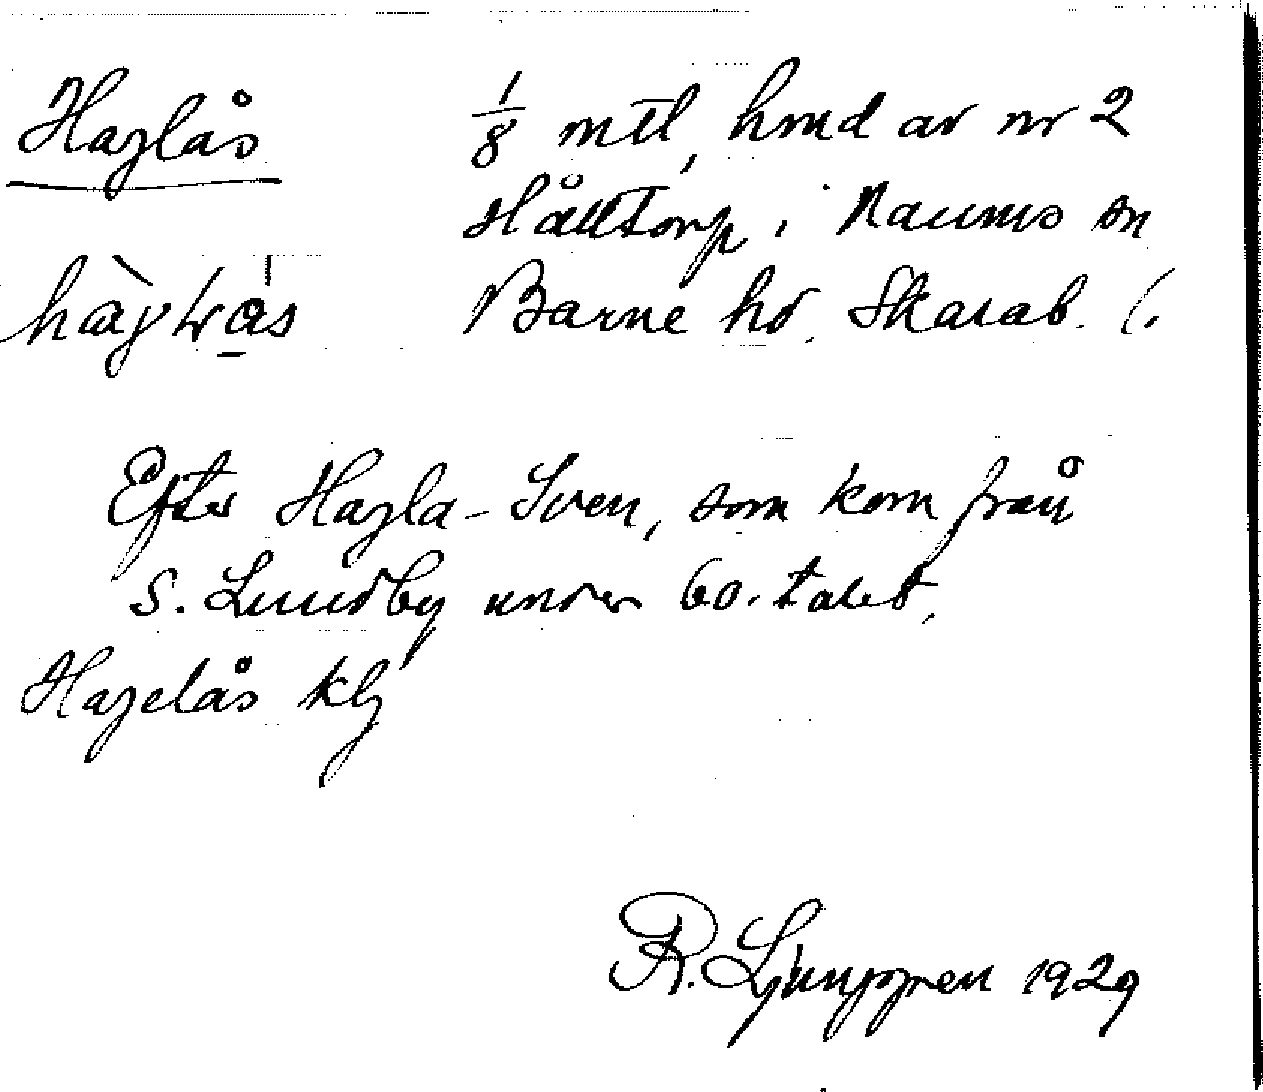 Haglås
1/8 mtl, hmd av nr 2
Hålltorp i Naums sn
Barne hd. Skarab. l.
Efter Hagla-Sven, som kom från
S. Lundby under 60-talet.
Hagelås kbg
R. Ljunggren 1929